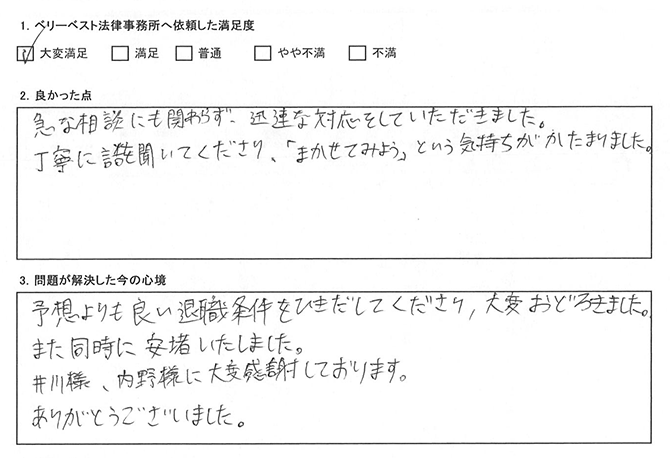 1. ベリーベスト法律事務所へ依頼した満足度
大変満足 満足 普通 やや不満 不満
2. 良かった点
急な相談にも関わらず、迅速な対応をしていただきました。
丁寧に話を聞いてくださり、「まかせてみよう」という気持ちがかたまりました。
3. 問題が解決した今の心境
予想よりも良い退職条件をひきだしてくださり、大変おどろきました。
また同時に安堵いたしました。
井川様、内野様に大変感謝しております。
ありがとうございました。